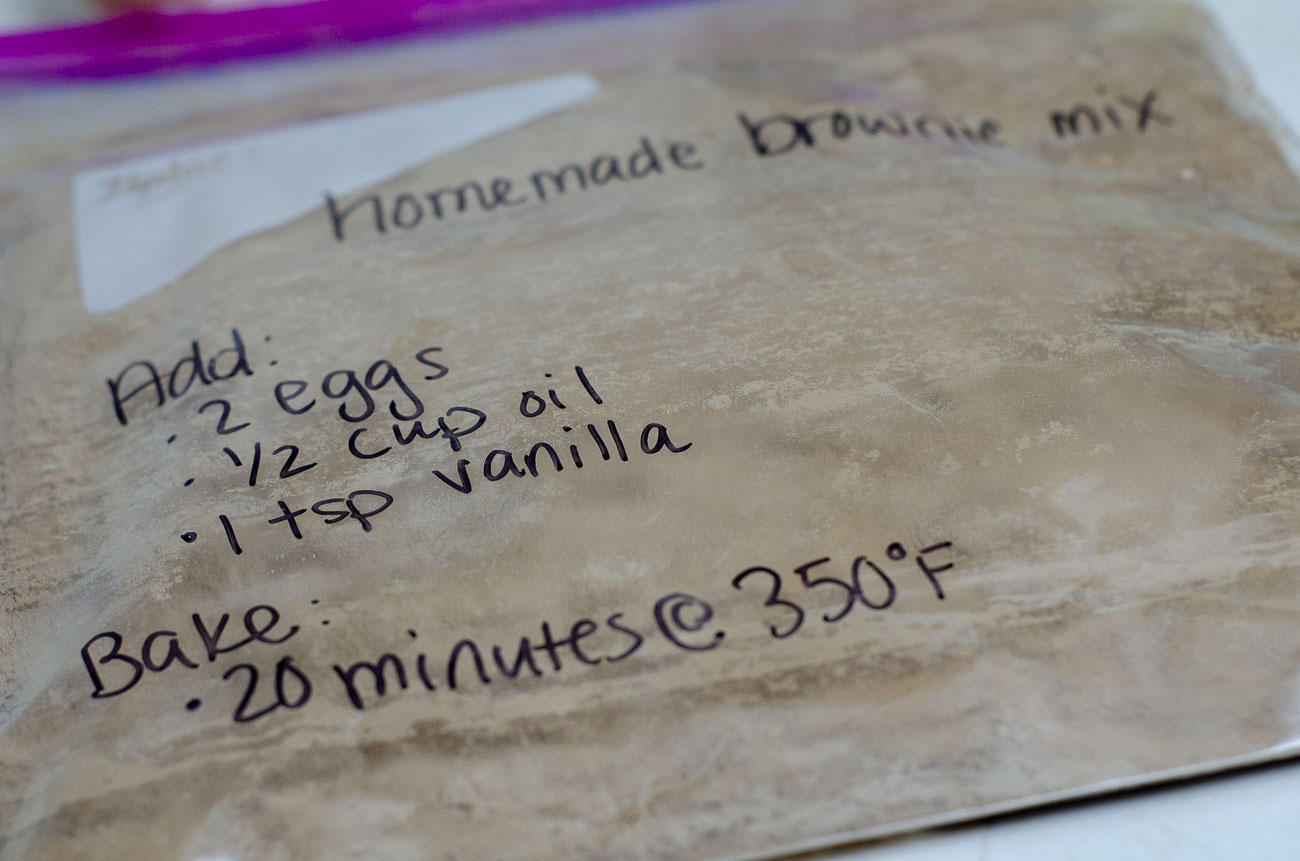 Homemade brownie mix
Add:
· 2 eggs
· 1/2 cup oil
· 1 tsp vanilla
Bake:
· 20 minutes @ 350°F